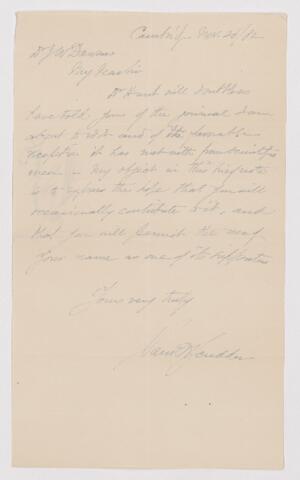 Cambridge Nov. 20/82
Dr J W Dawson
My dear Sir
Dr Hunt will doubtless
have told you of the journal I am
about to edit and of the favorable
reception it has met with from scientific
men — My object in this brief note
is to express the hope that you will
occasionally contribute to it, and
that you will permit the use of
your name as one of its supporters
Yours very truly
Sam'l H Scudder